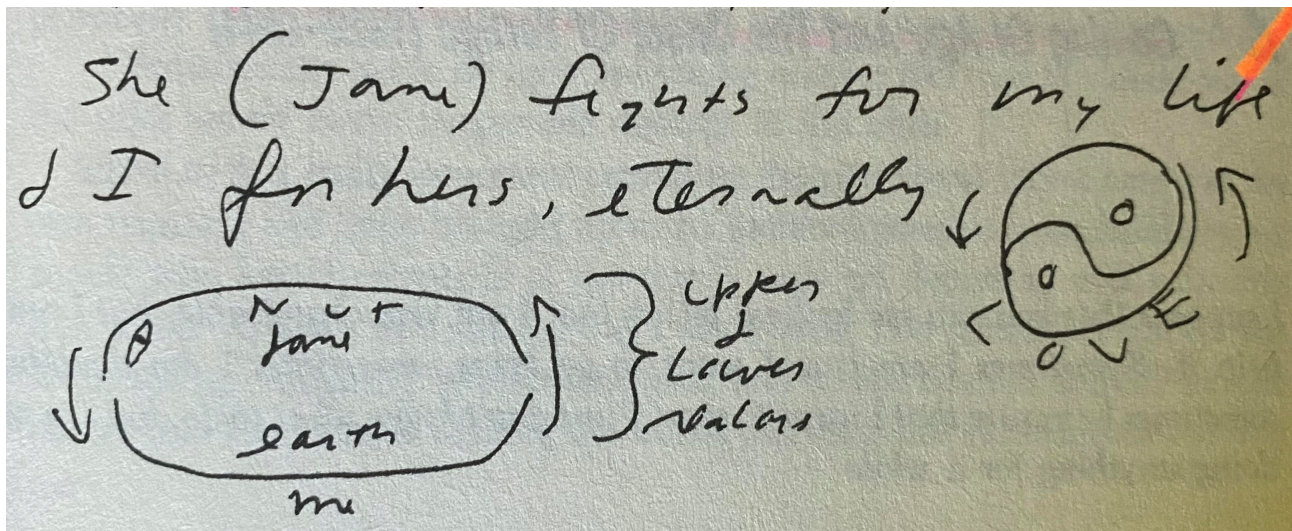 She (Jane) fights for my life
& I for hers, eternally
Nut
Jane
earth
me
upper
&
Lower
realms
LOVE